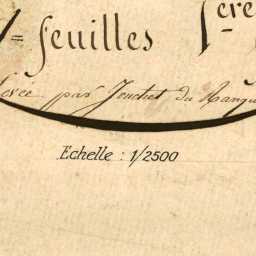 = feuilles 1ere
par Jouchet du Rang
Echelle : 1/2500